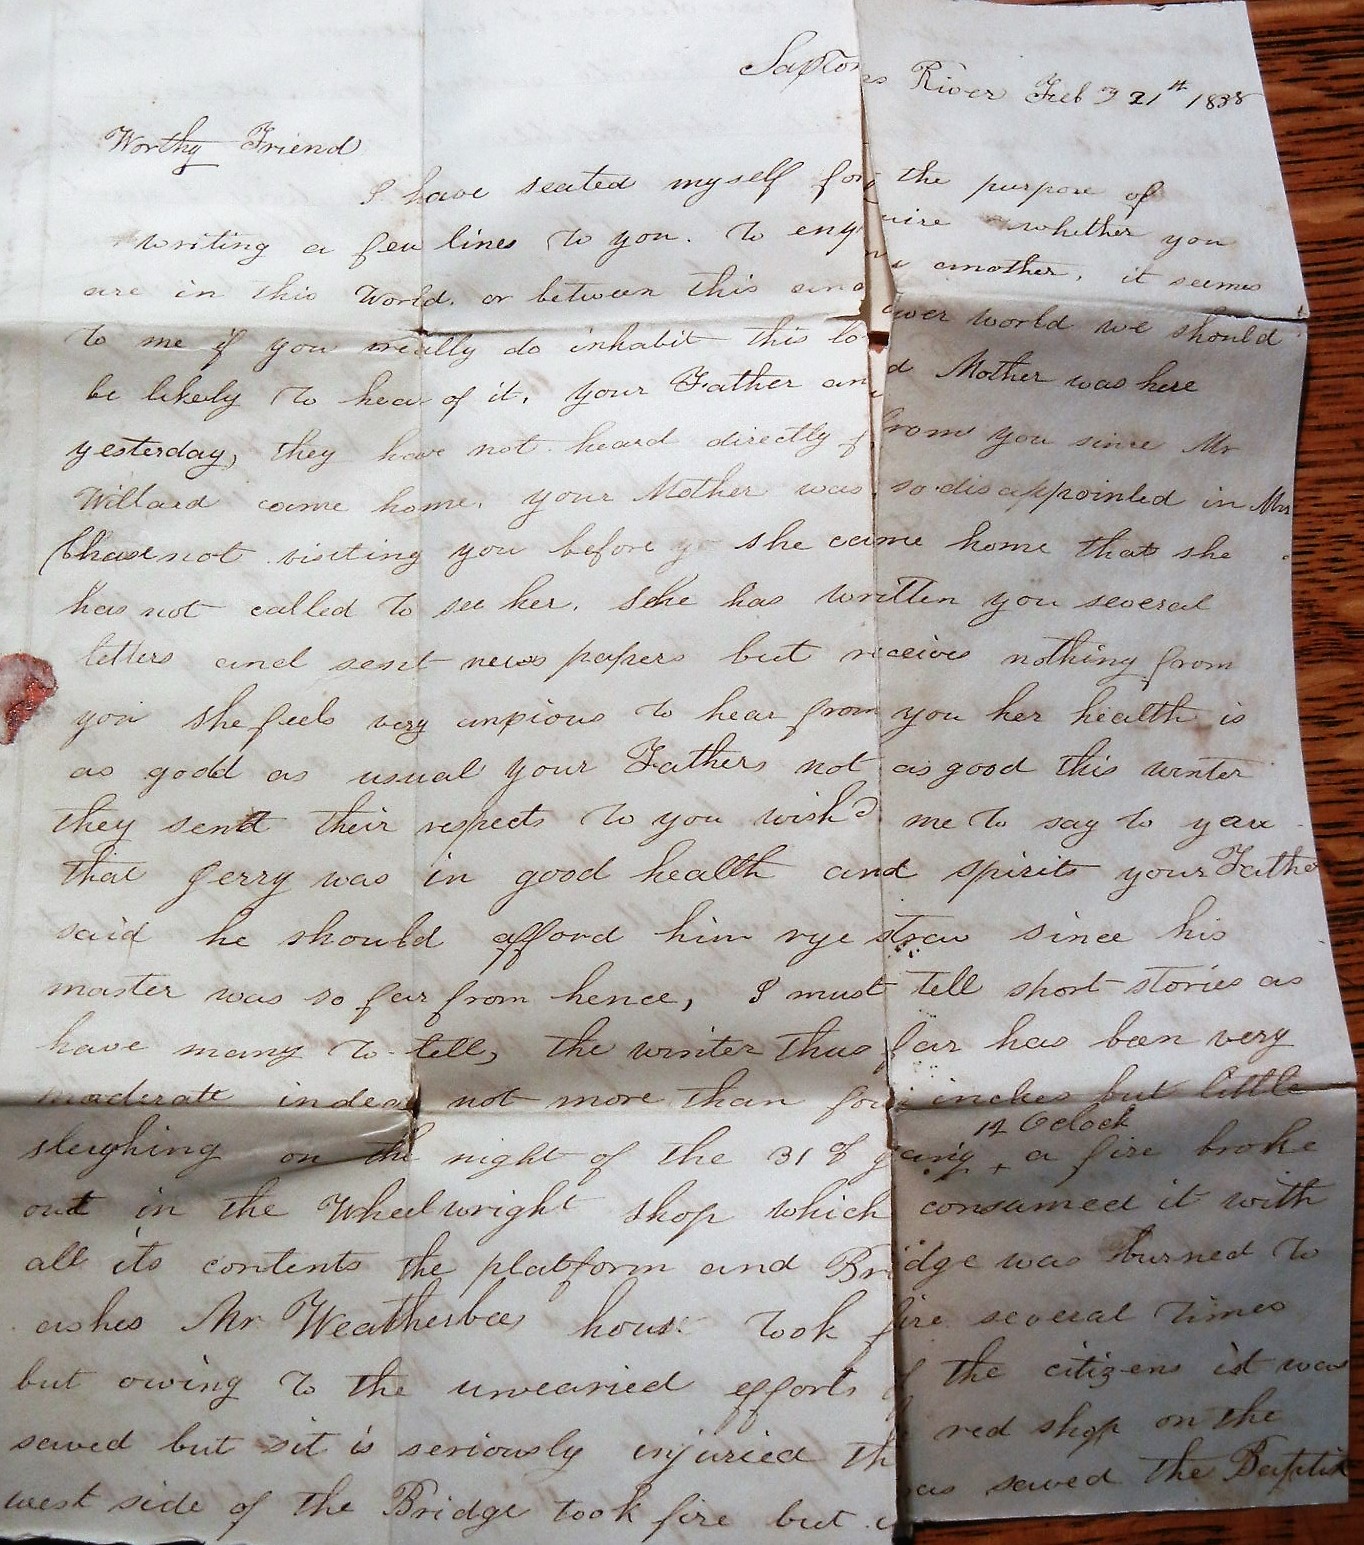 Saxtons River Feb 21th 1838
Worthy Friend
I have seated myself for the purpose of
writing a few lines to you. To enquire whether you
are in this World, or between this and another, it seemes
to me if you really do inhabit this lower world we should
be likely to hear of it. your Father and Mother was here
yesterday, they have not heard directly from you since Mr
Willard came home. your Mother was so disappointed in Mrs
Chase not visiting you before she came home that she
has not called to see her. She has written you several
letters and sent news papers but receives nothing from
you she feels very anxious to hear from you her health is
as good as usual your Fathers not as good this winter
they send their respects to you wish'd me to say to you
that Jerry was in good health and spirits your Father
said he should afford him rye straw since his
master was so far from hence, I must tell short stories as
have many to tell, the winter thus far has been very
moderate indead not more than four inches but little
sleighing on the night of the 31 of 12 Oclock a fire broke
out in the Wheelwright shop which consumed it with
all its contents the platform and Bridge was burned to
ashes Mr Weatherbees house took fire several times
but owing to the unwearied efforts of the citizens it was
saved but it is seriously injuried the red shop on the
west side of the Bridge took fire but was saved the Baptist